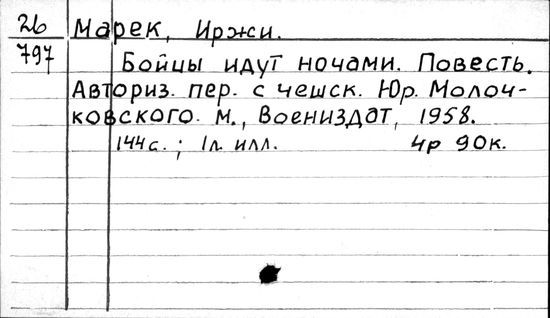 26 Марек, Иржи.
797 Бойцы идут ночами. Повесть.
Авториз. пер. с чешск. Юр. Молоч-
ковского. М., Воениздат, 1958.
144 с. ; 1 л. илл. 4р 90к.